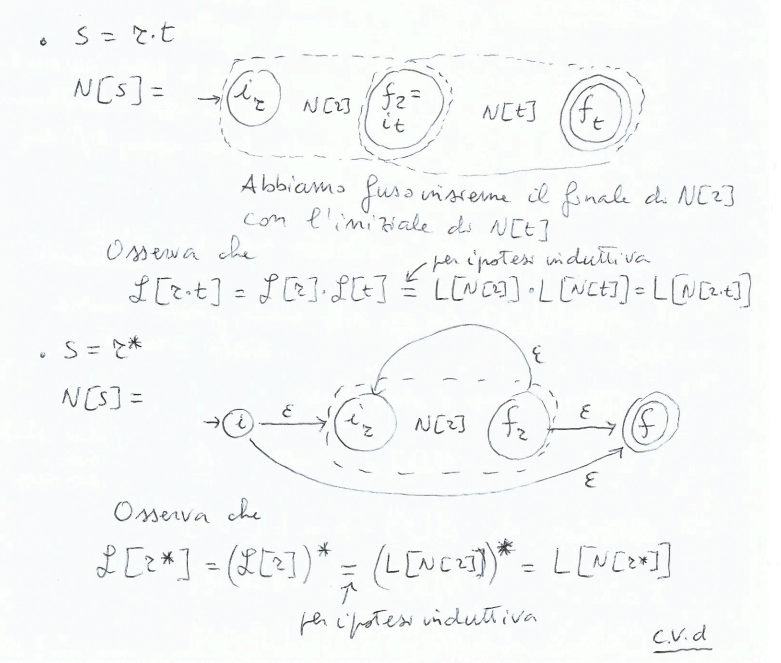 • S = r·t
N[s] = → i_r N[r] f_r = i_t N[t] f_t
Abbiamo fuso insieme il finale di N[r]
con l'iniziale di N[t]
Osserva che
per ipotesi induttiva
ℒ[r·t] = ℒ[r]·ℒ[t] = L[N[r]]·L[N[t]] = L[N[r·t]]
• S = r*
ε
N[s] =
→ i ε i_r N[r] f_r ε f
ε
Osserva che
ℒ[r*] = (ℒ[r])* = (L[N[r]])* = L[N[r*]]
per ipotesi induttiva
c.v.d